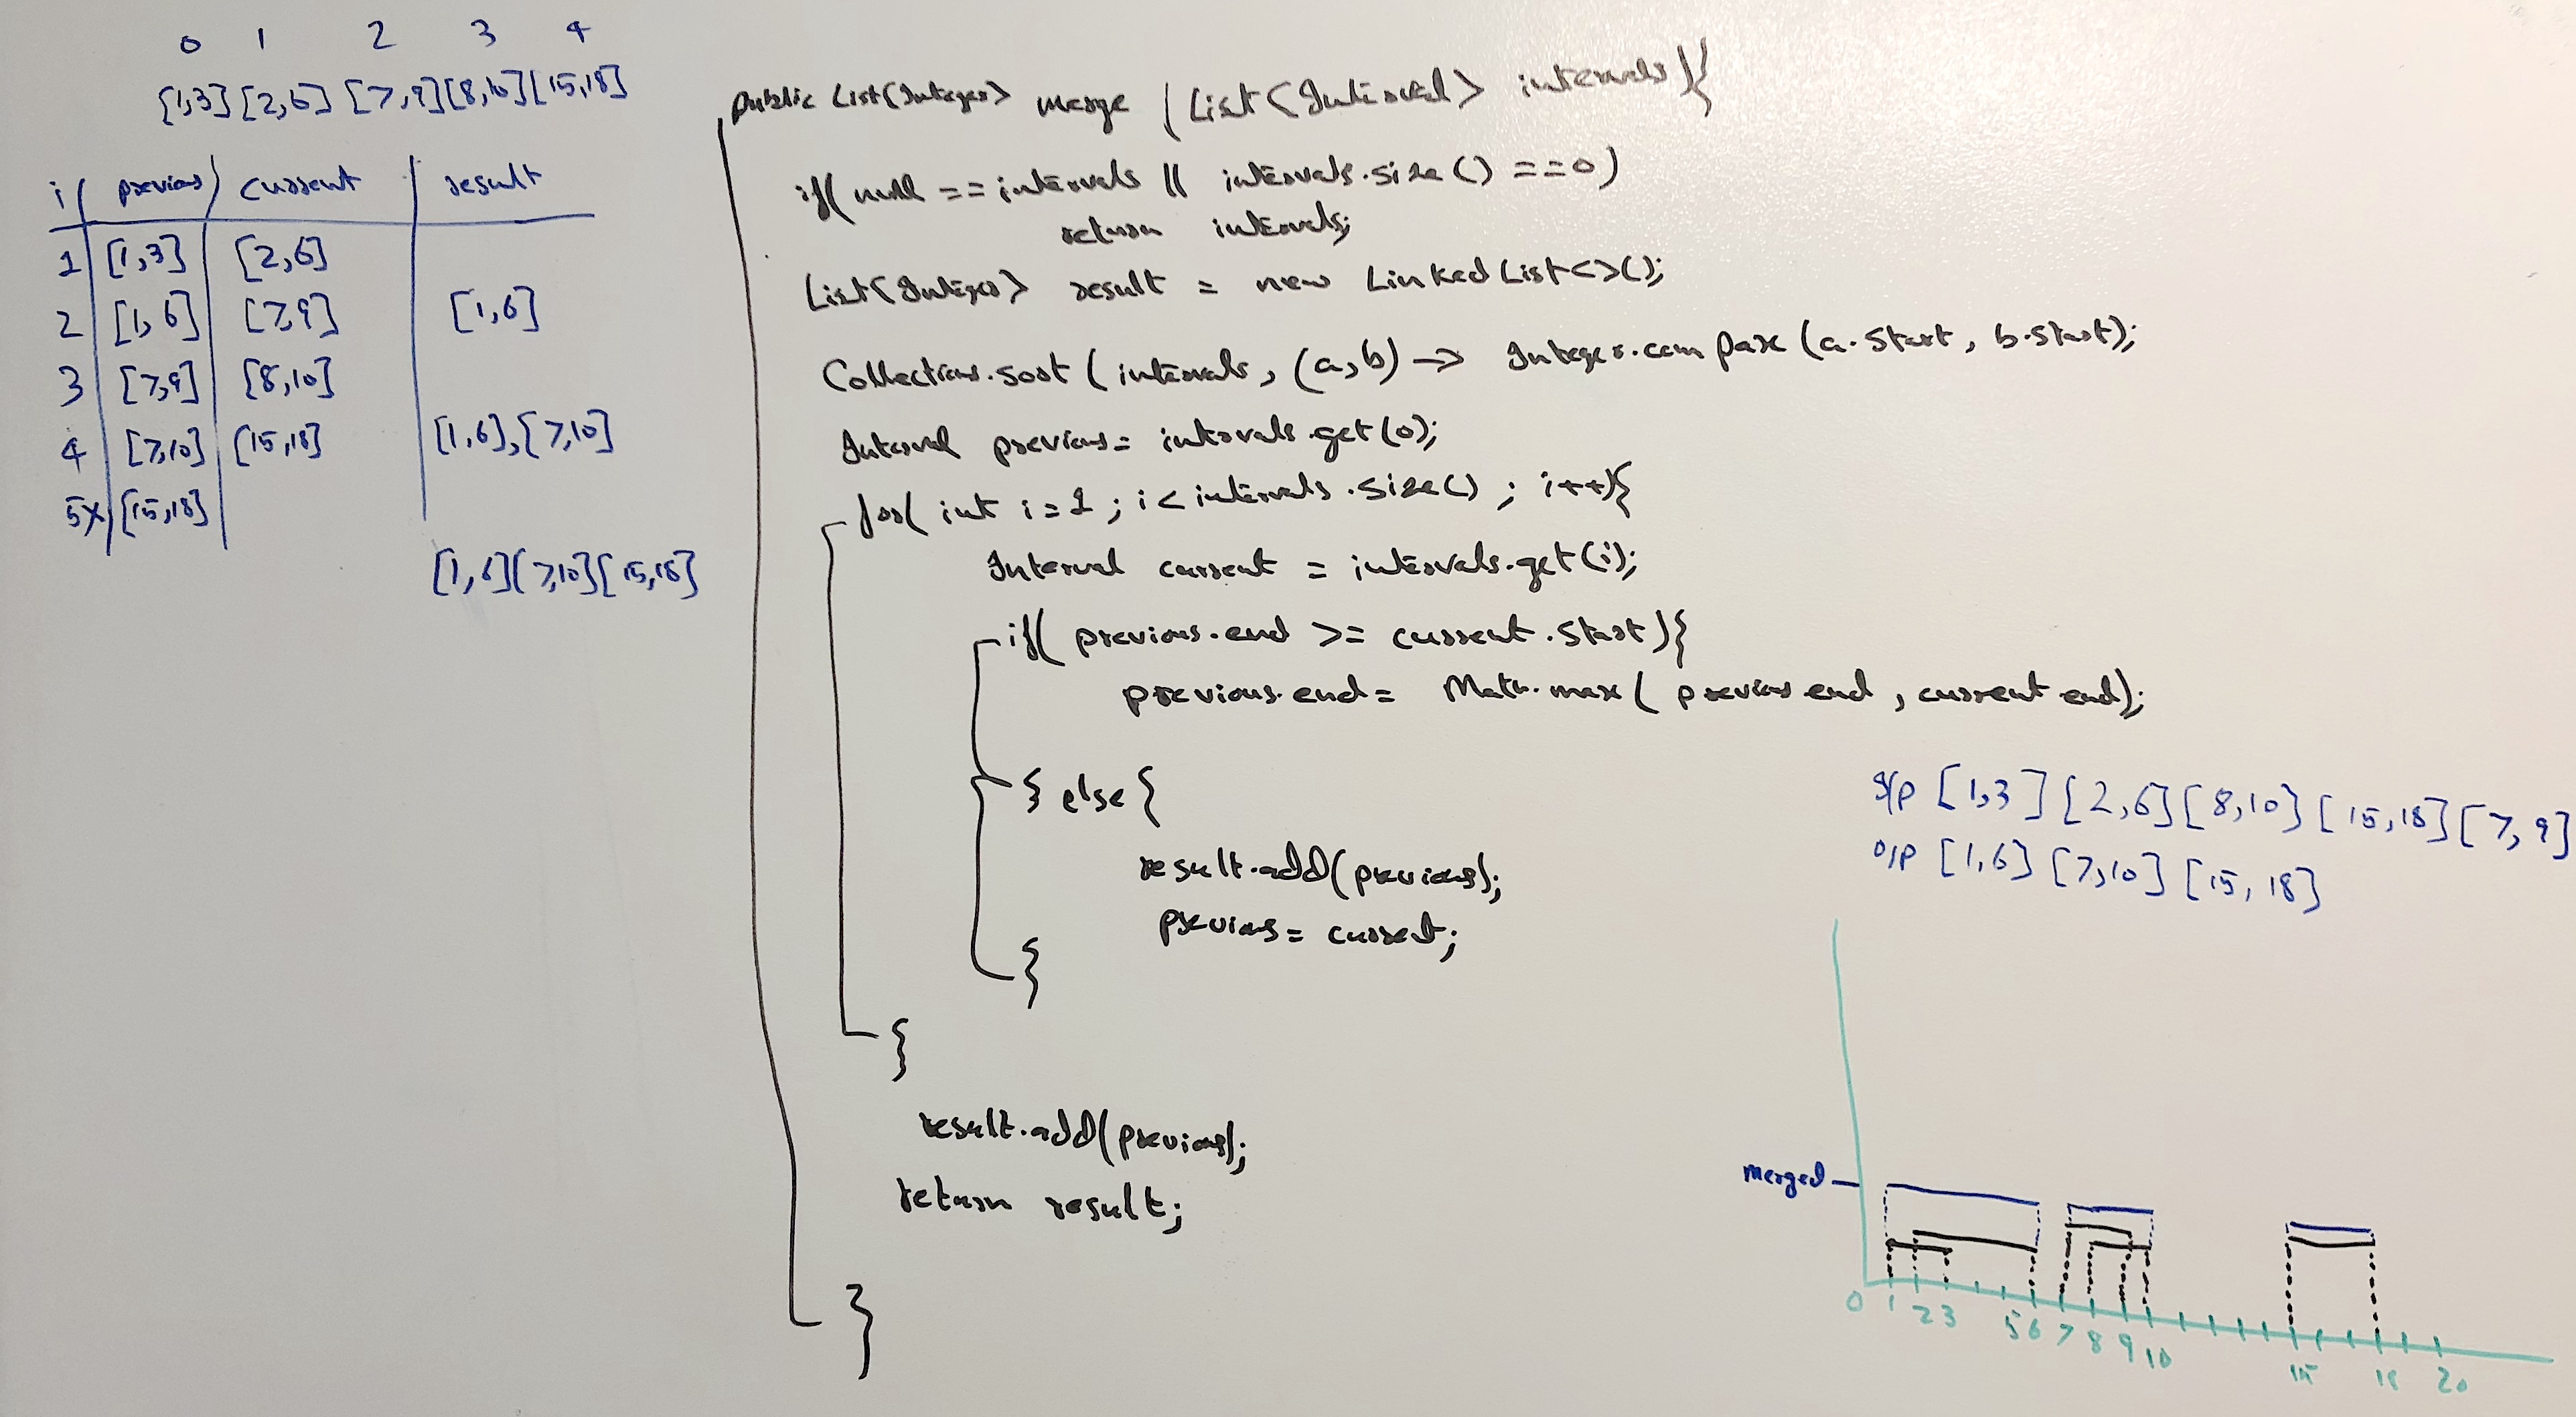 0 1 2 3 4
[1,3] [2,6] [7,9] [8,10] [15,18]
i previous current result
1 [1,3] [2,6]
2 [1,6] [7,9] [1,6]
3 [7,9] [8,10]
4 [7,10] [15,18] [1,6],[7,10]
5x [15,18]
[1,6][7,10][15,18]
public List<Integer> merge (List<Interval> intervals){
if(null == intervals || intervals.size() ==0)
return intervals;
List<Integer> result = new LinkedList<>();
Collections.sort(intervals, (a,b) -> Integer.compare(a.start, b.start);
Interval previous = intervals.get(0);
for( int i=1 ; i<intervals.size() ; i++){
Interval current = intervals.get(i);
if( previous.end >= current.start){
previous.end = Math.max( previous end , current end);
} else {
result.add(previous);
previous = current;
}
}
result.add(previous);
return result;
}
I/p [1,3] [2,6] [8,10] [15,18] [7,9]
O/P [1,6] [7,10] [15,18]
merged
0 1 2 3 5 6 7 8 9 10 15 18 20